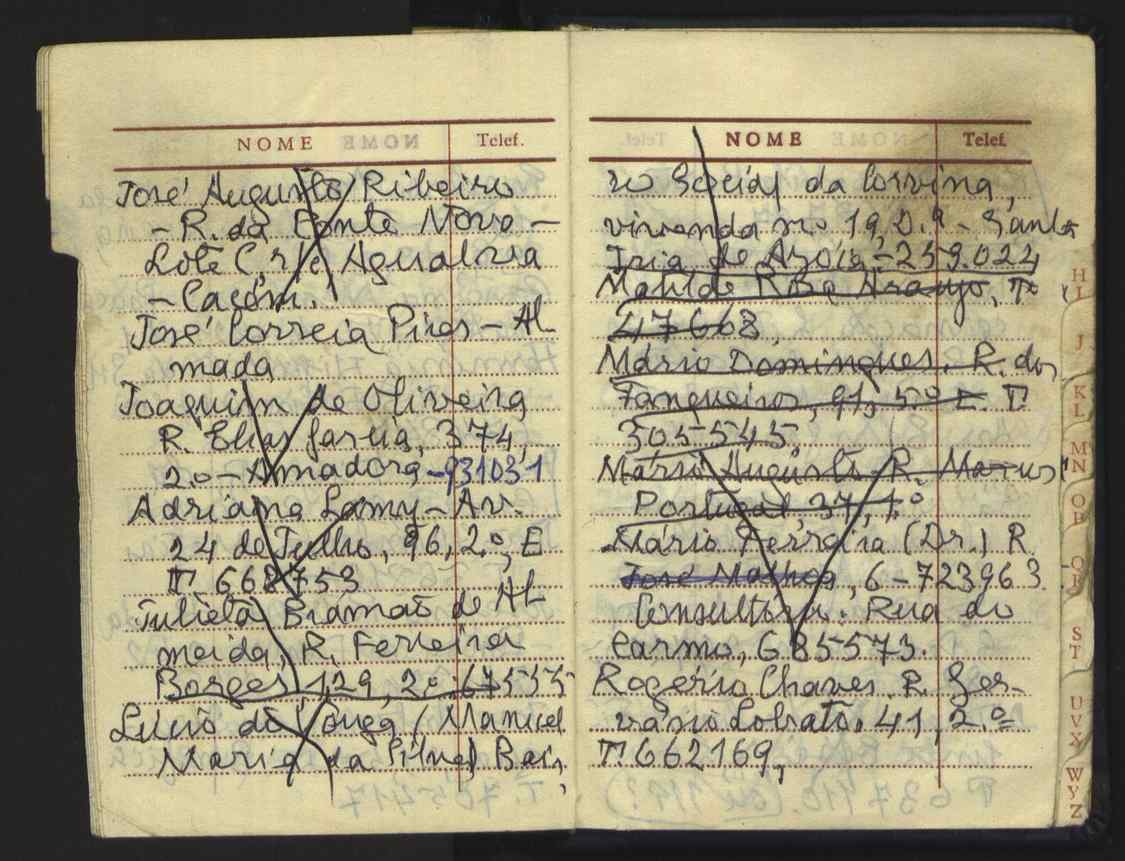 NOME Telef.
José Augusto Ribeiro
- R. da Ponte Nova -
Lote C, r/c Agualva
- Cacém.
José Correia Pires - Al
mada
Joaquim de Oliveira
R. Elias Garcia, 374,
2o - Amadora - 931031
Adriano Lamy - Av.
24 de Julho, 96, 2.o, E
T. 668753
Julieta Bramão de Al
meida, R. Ferreira
Borges 129, 2o 675535
Lúcio do Vouga / Manuel
Maria da Silva) Bair,
NOME Telef.
ro Social da Covina,
vivenda no 19, D.a - Santa
Iria de Azóia - 259.024
Matilde Rosa Araujo, T.
47668,
Mário Domingues. R. dos
Fanqueiros, 91, 5o E. T
305545,
Mário Augusto R. Marus
Portugal, 37, 1.o
Mário Ferreira (Dr.) R
José Malhoa, 6 - 723963
Consultório: Rua do
Carmo, 685573.
Rogério Chaves. R. Ger-
vásio Lobato, 41, 2.o
T. 662169,
HI
J
KL
MN
OP
QR
ST
UVX
WYZ